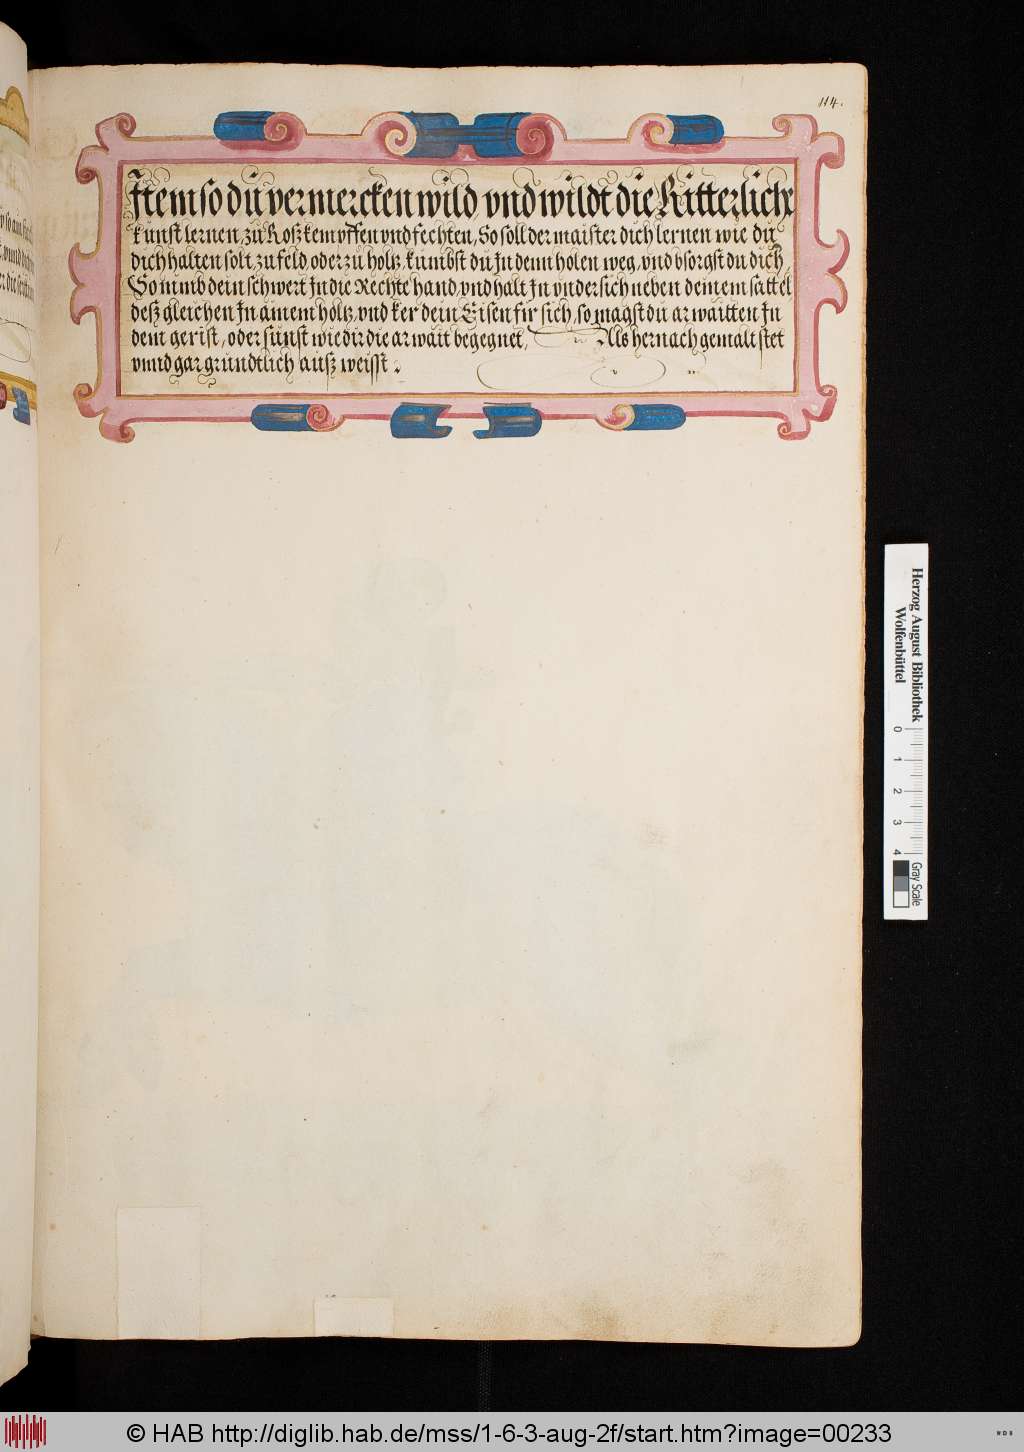 114.
Item so du vermercken wild vnd wildt die Ritterlich
kunst lernen, zu Roß kempffen vnd fechten, So soll der maister dich lernen wie du
dich halten solt, zu feld oder zu holtz, kumbst du In denn holen weg, vnd bsorgst du dich,
So nimb dein schwert In die Rechte hand, vnd halt In vndersich neben deinem sattel
desz gleichen In ainem holtz, vnd ker dein Eisen für sich, so magst du arwaitten In
dem gerist, oder sunst wie dir die arwait begegnet, Als hernach gemalt stet
vnnd gar grundtlich ausz weisst.
Herzog August Bibliothek
Wolfenbüttel
0 1 2 3 4
Gray Scale
© HAB http://diglib.hab.de/mss/1-6-3-aug-2f/start.htm?image=00233